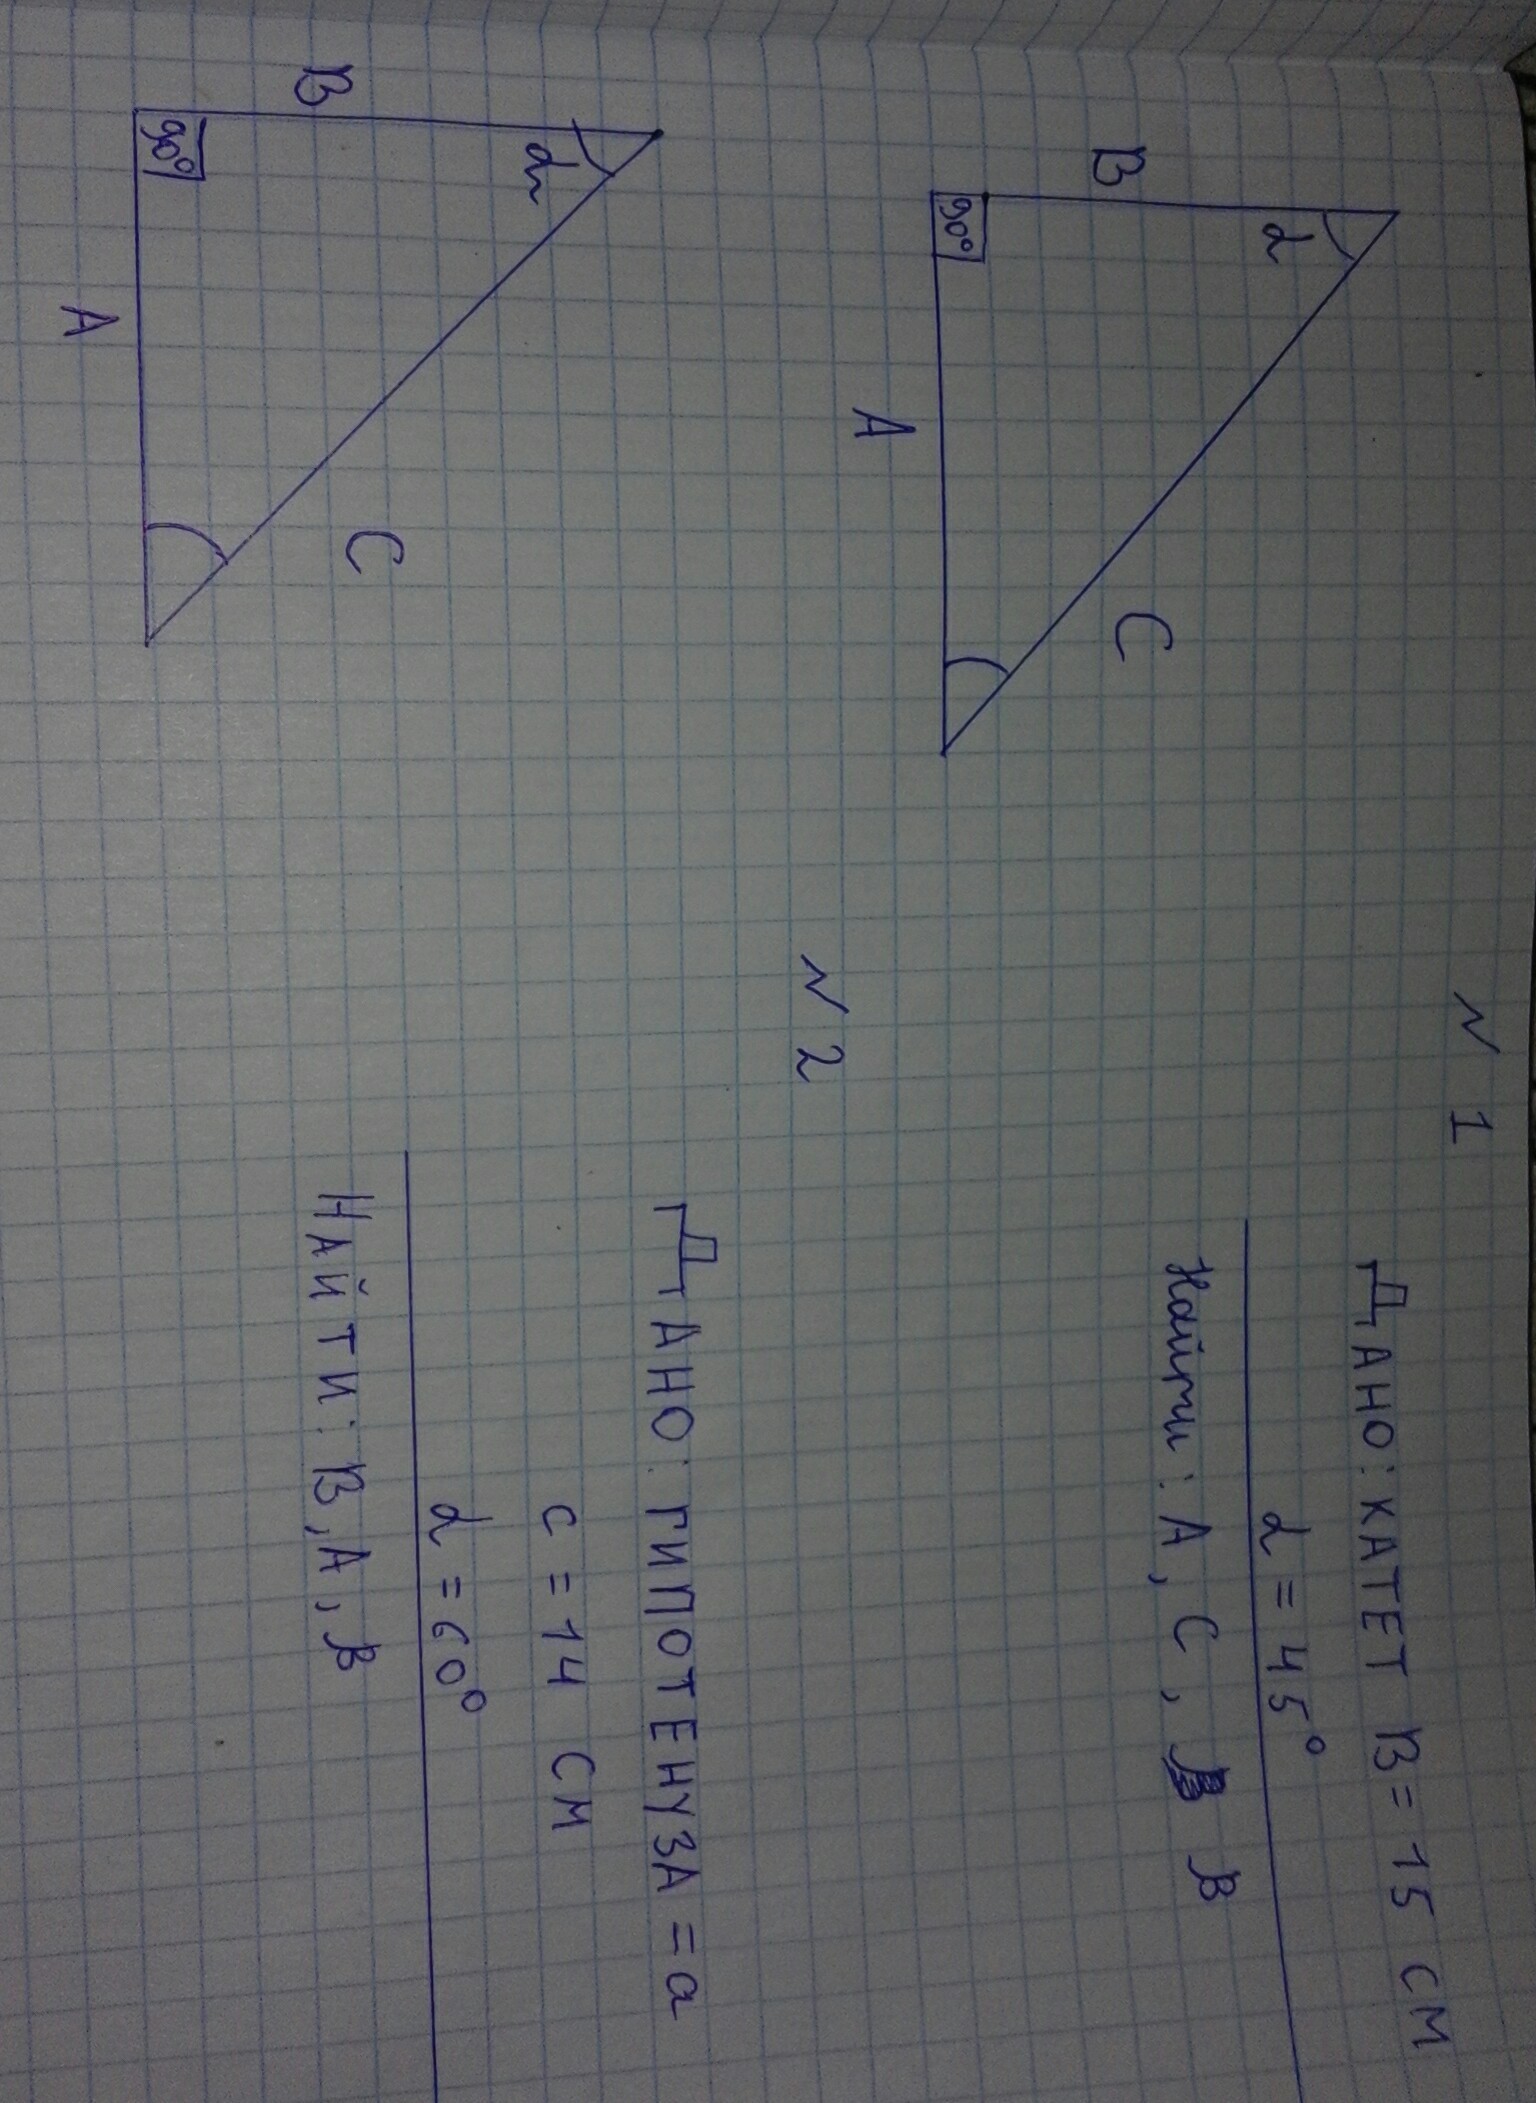 N 1
ДАНО: КАТЕТ В = 15 СМ
α = 45°
Найти: А, С, β
В
α
С
90°
А
N 2
ДАНО: ГИПОТЕНУЗА = а
с = 14 СМ
α = 60°
НАЙТИ: В, А, β
В
α
С
90°
А